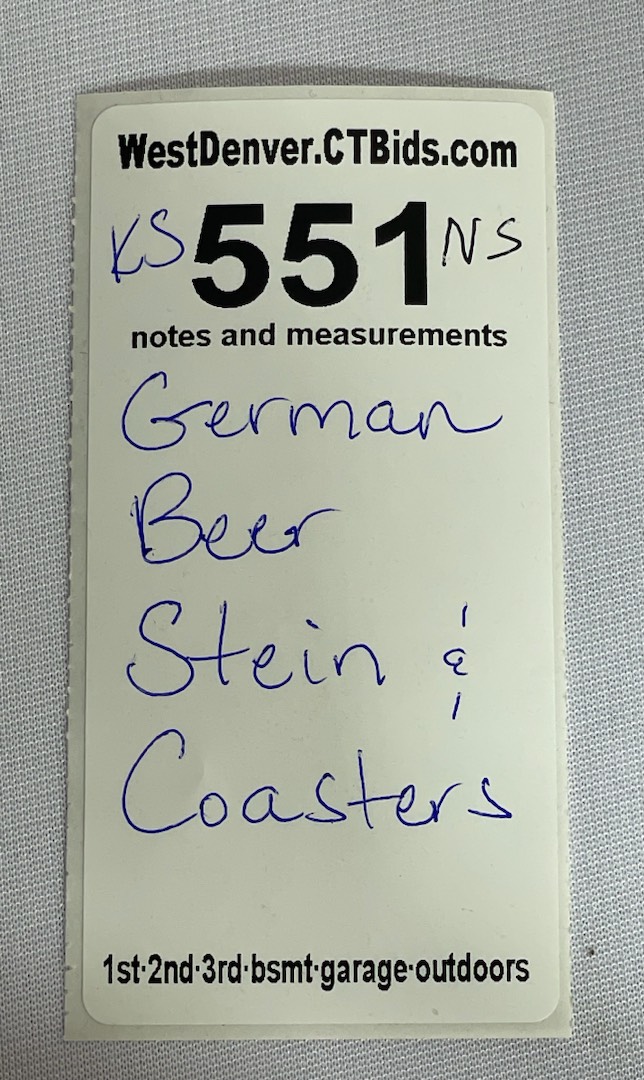 WestDenver.CTBids.com
KS 551 NS
notes and measurements
German
Beer
Stein &
Coasters
1st·2nd·3rd·bsmt·garage·outdoors